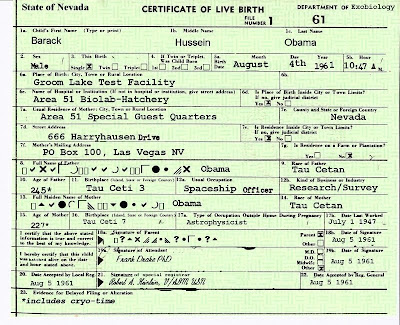 State of Nevada CERTIFICATE OF LIVE BIRTH DEPARTMENT OF Exobiology
FILE NUMBER 1 61
1a. Child's First Name (Type or print) 1b. Middle Name 1c. Last Name
Barack Hussein Obama
2. Sex 3. This Birth 4. If Twin or Triplet, Was Child Born 5a. Birth Date Month Day Year 5b. Hour
Male Single Twin Triplet August 4th 1961 10:47 M
6a. Place of Birth: City, Town or Rural Location 6b.
Groom Lake Test Facility
6c. Name of Hospital or Institution (If not in hospital or institution, give street address) 6d. Is Place of Birth Inside City or Town Limits? If no, give judicial district
Area 51 Biolab-Hatchery Yes No
7a. Usual Residence of Mother: City, Town or Rural Location 7b. 7c. County and State or Foreign Country
Area 51 Special Guest Quarters Nevada
7d. Street Address 7e. Is Residence Inside City or Town Limits? If no, give judicial district
666 Harryhausen Drive Yes No
7f. Mother's Mailing Address 7g. Is Residence on a Farm or Plantation?
PO Box 100, Las Vegas NV Yes No
8. Full Name of Father 9. Race of Father
Obama Tau Cetan
10. Age of Father 11. Birthplace (Island, State or Foreign Country) 12a. Usual Occupation 12b. Kind of Business or Industry
245* Tau Ceti 3 Spaceship Officer Research/Survey
13. Full Maiden Name of Mother 14. Race of Mother
Obama Tau Cetan
15. Age of Mother 16. Birthplace (Island, State or Foreign Country) 17a. Type of Occupation Outside Home During Pregnancy 17b. Date Last Worked
227* Tau Ceti 7 Astrophysicist July 1 1947
I certify that the above stated information is true and correct to the best of my knowledge. 18a. Signature of Parent Parent Other 18b. Date of Signature
Aug 5 1961
I hereby certify that this child was born alive on the date and hour stated above. 19a. Signature of Attendant M.D. D.O. Midwife Other 19b. Date of Signature
Frank Drake PhD Aug 5 1961
20. Date Accepted by Local Reg. 21. Signature of special registrar 22. Date Accepted by Reg. General
Aug 5 1961 Aug 5 1961
23. Evidence for Delayed Filing or Alteration
*includes cryo-time